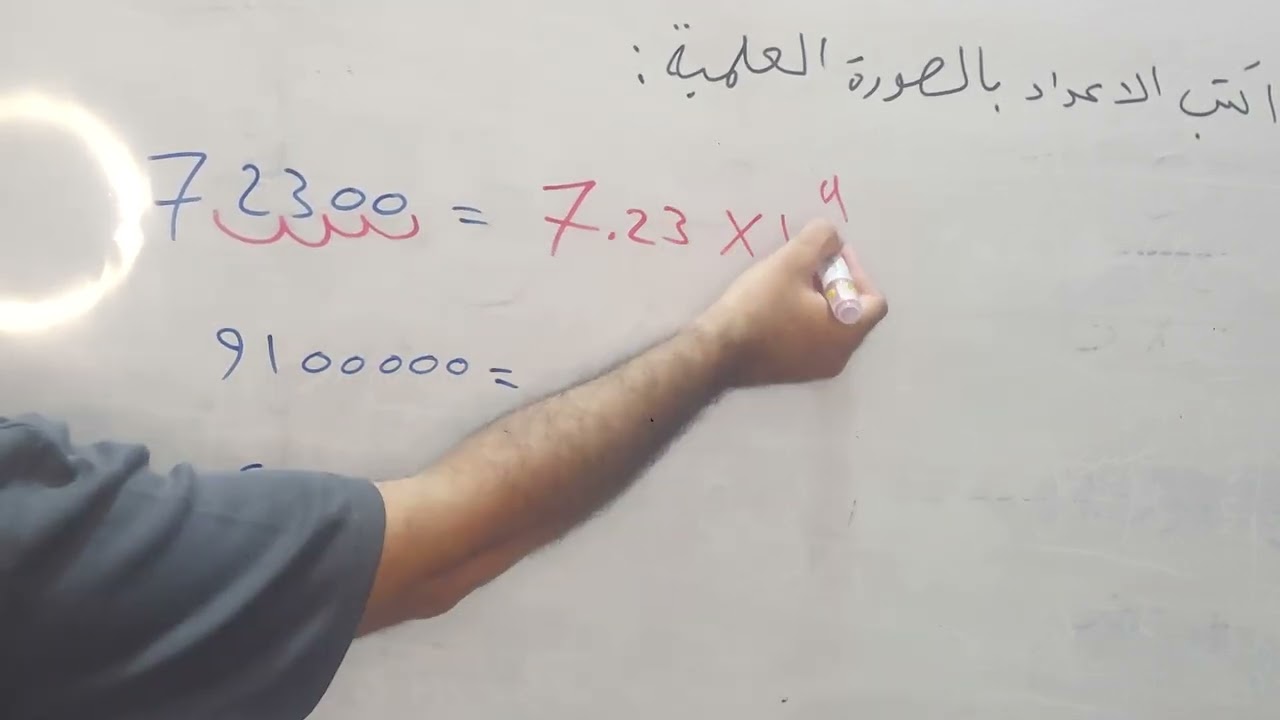 اكتب الاعداد بالصورة العلمية :
72300 = 7.23 × 1 4
9100000 =